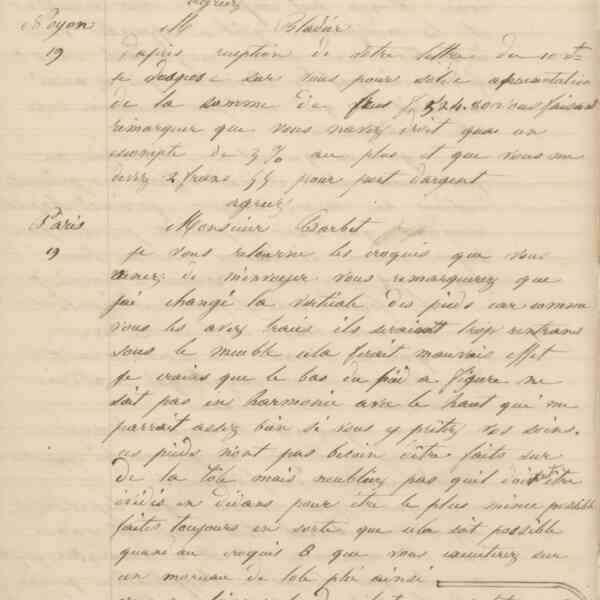 agréez
Noyon M Bladier
19 d'après reception de votre lettre du 10 ct
je dispose sur vous pour solde a présentation
de la somme de frcs 324.80 vous faisant
remarquer que vous navez droit qua un
escompte de 3% au plus et que vous me
devez 2 francs 55 pour port dargent
agréez
Paris Monsieur Corbet
19 je vous retourne les croquis que vous
venez de m'envoyer vous remarquerez que
j'ai changé la verticale des pieds car comme
vous les avez tracés ils seraient trop rentrans
sous le meuble cela ferait mauvais effet
je crains que le bas du pié a figure ne
soit pas en harmonie avec le haut qui me
parrait assez bien si vous y prêtez vos soins.
ces pieds nont pas besoin d'être faits sur
de la tôle mais noubliez pas quil doit être
évidés en dedans pour être le plus mince possible
faites toujours en sorte que cela soit possible
quand au croquis B que vous executerez sur
un morceau de tole plié ainsi